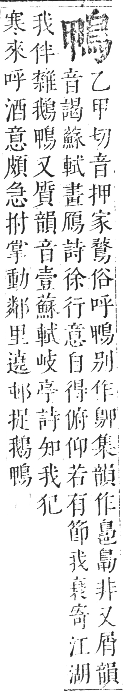 鴨
乙甲切音押家鶩俗呼鴨別作集韻作非又屑韻
音謁蘇軾畫鴈詩徐行意自得俯仰若有節我衰寄江湖
我伴雜鵝鴨又質韻音壹蘇軾岐亭詩知我犯
寒來呼酒意頗急拊掌動鄰里遶邨捉鵝鴨